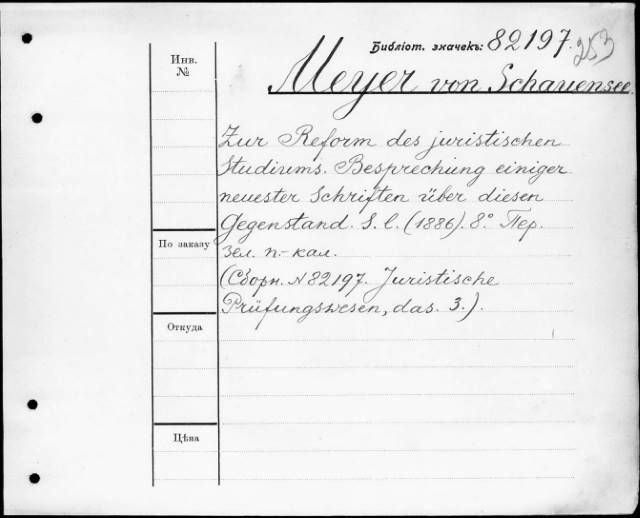 Библіот. значекъ: 82197.
253
Инв.
№
Meyer von Schauensee.
Zur Reform des juristischen
Studiums. Besprechung einiger
neuester Schriften über diesen
Gegenstand. S. l. (1886). 8° Пер.
зел. п.-кал.
(Сборн. N 82197. Juristische
Prüfungswesen, das. 3.).
По заказу
Откуда
Цѣна